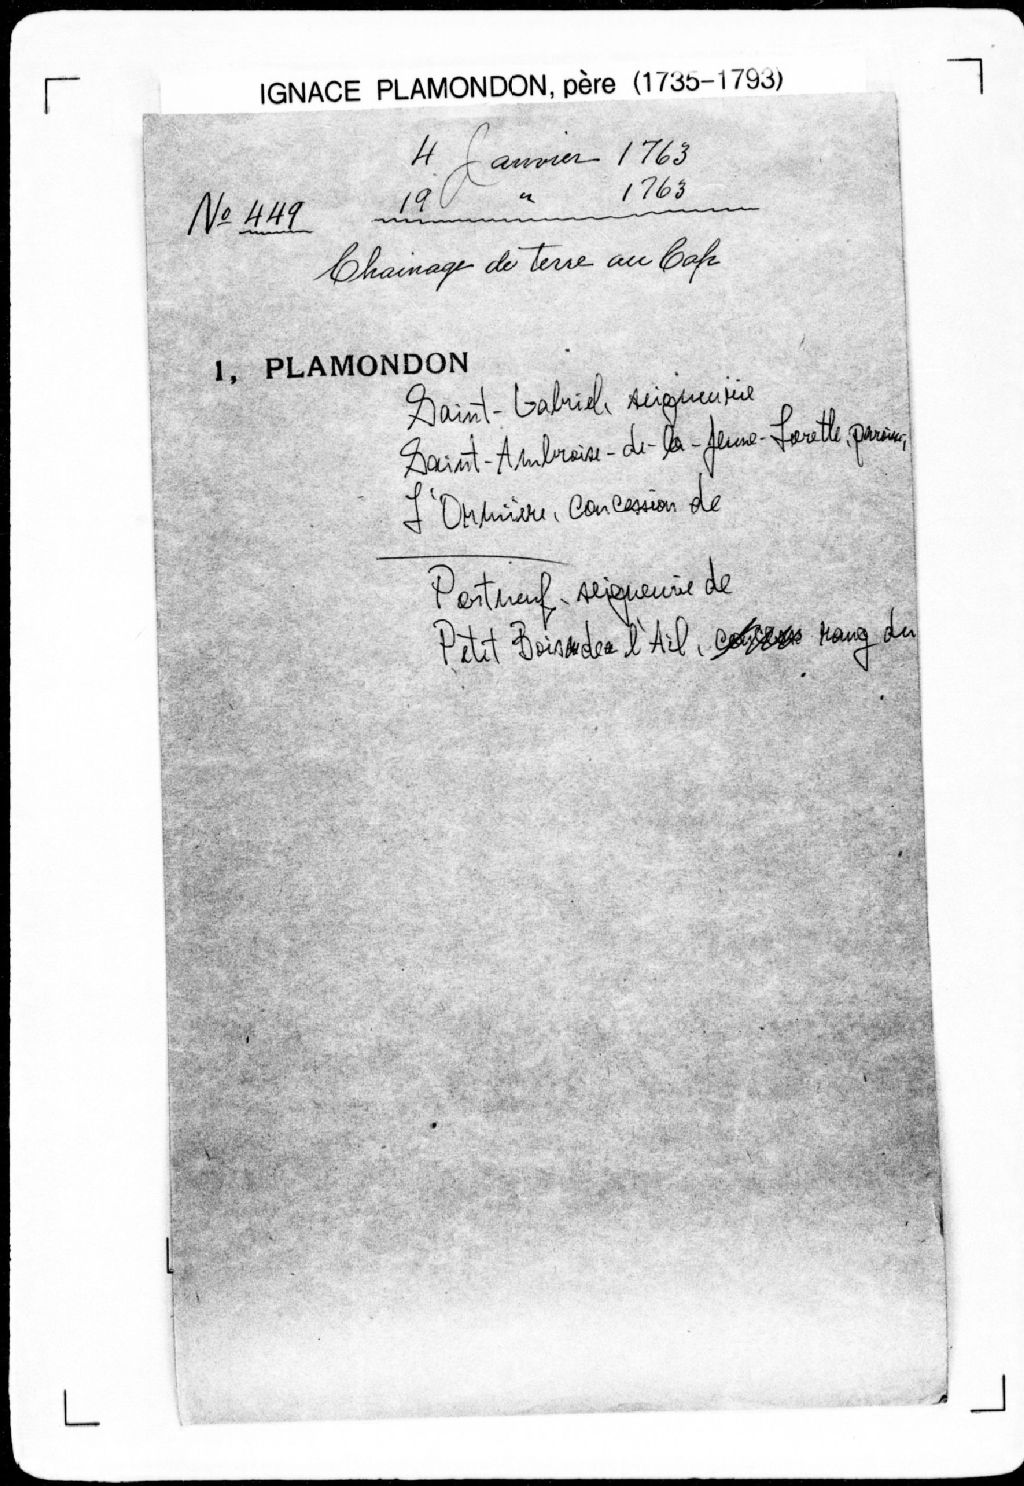 IGNACE PLAMONDON, père (1735-1793)
4 Janvier 1763
19 " 1763
No 449
Chainage de terre au Cap
1, PLAMONDON
Saint-Gabriel, seigneurie
Saint-Ambroise-de-la-Jeune-Lorette,
L'Ormière, concession de
Portneuf, seigneurie de
Petit Bois de l'Ail, rang du